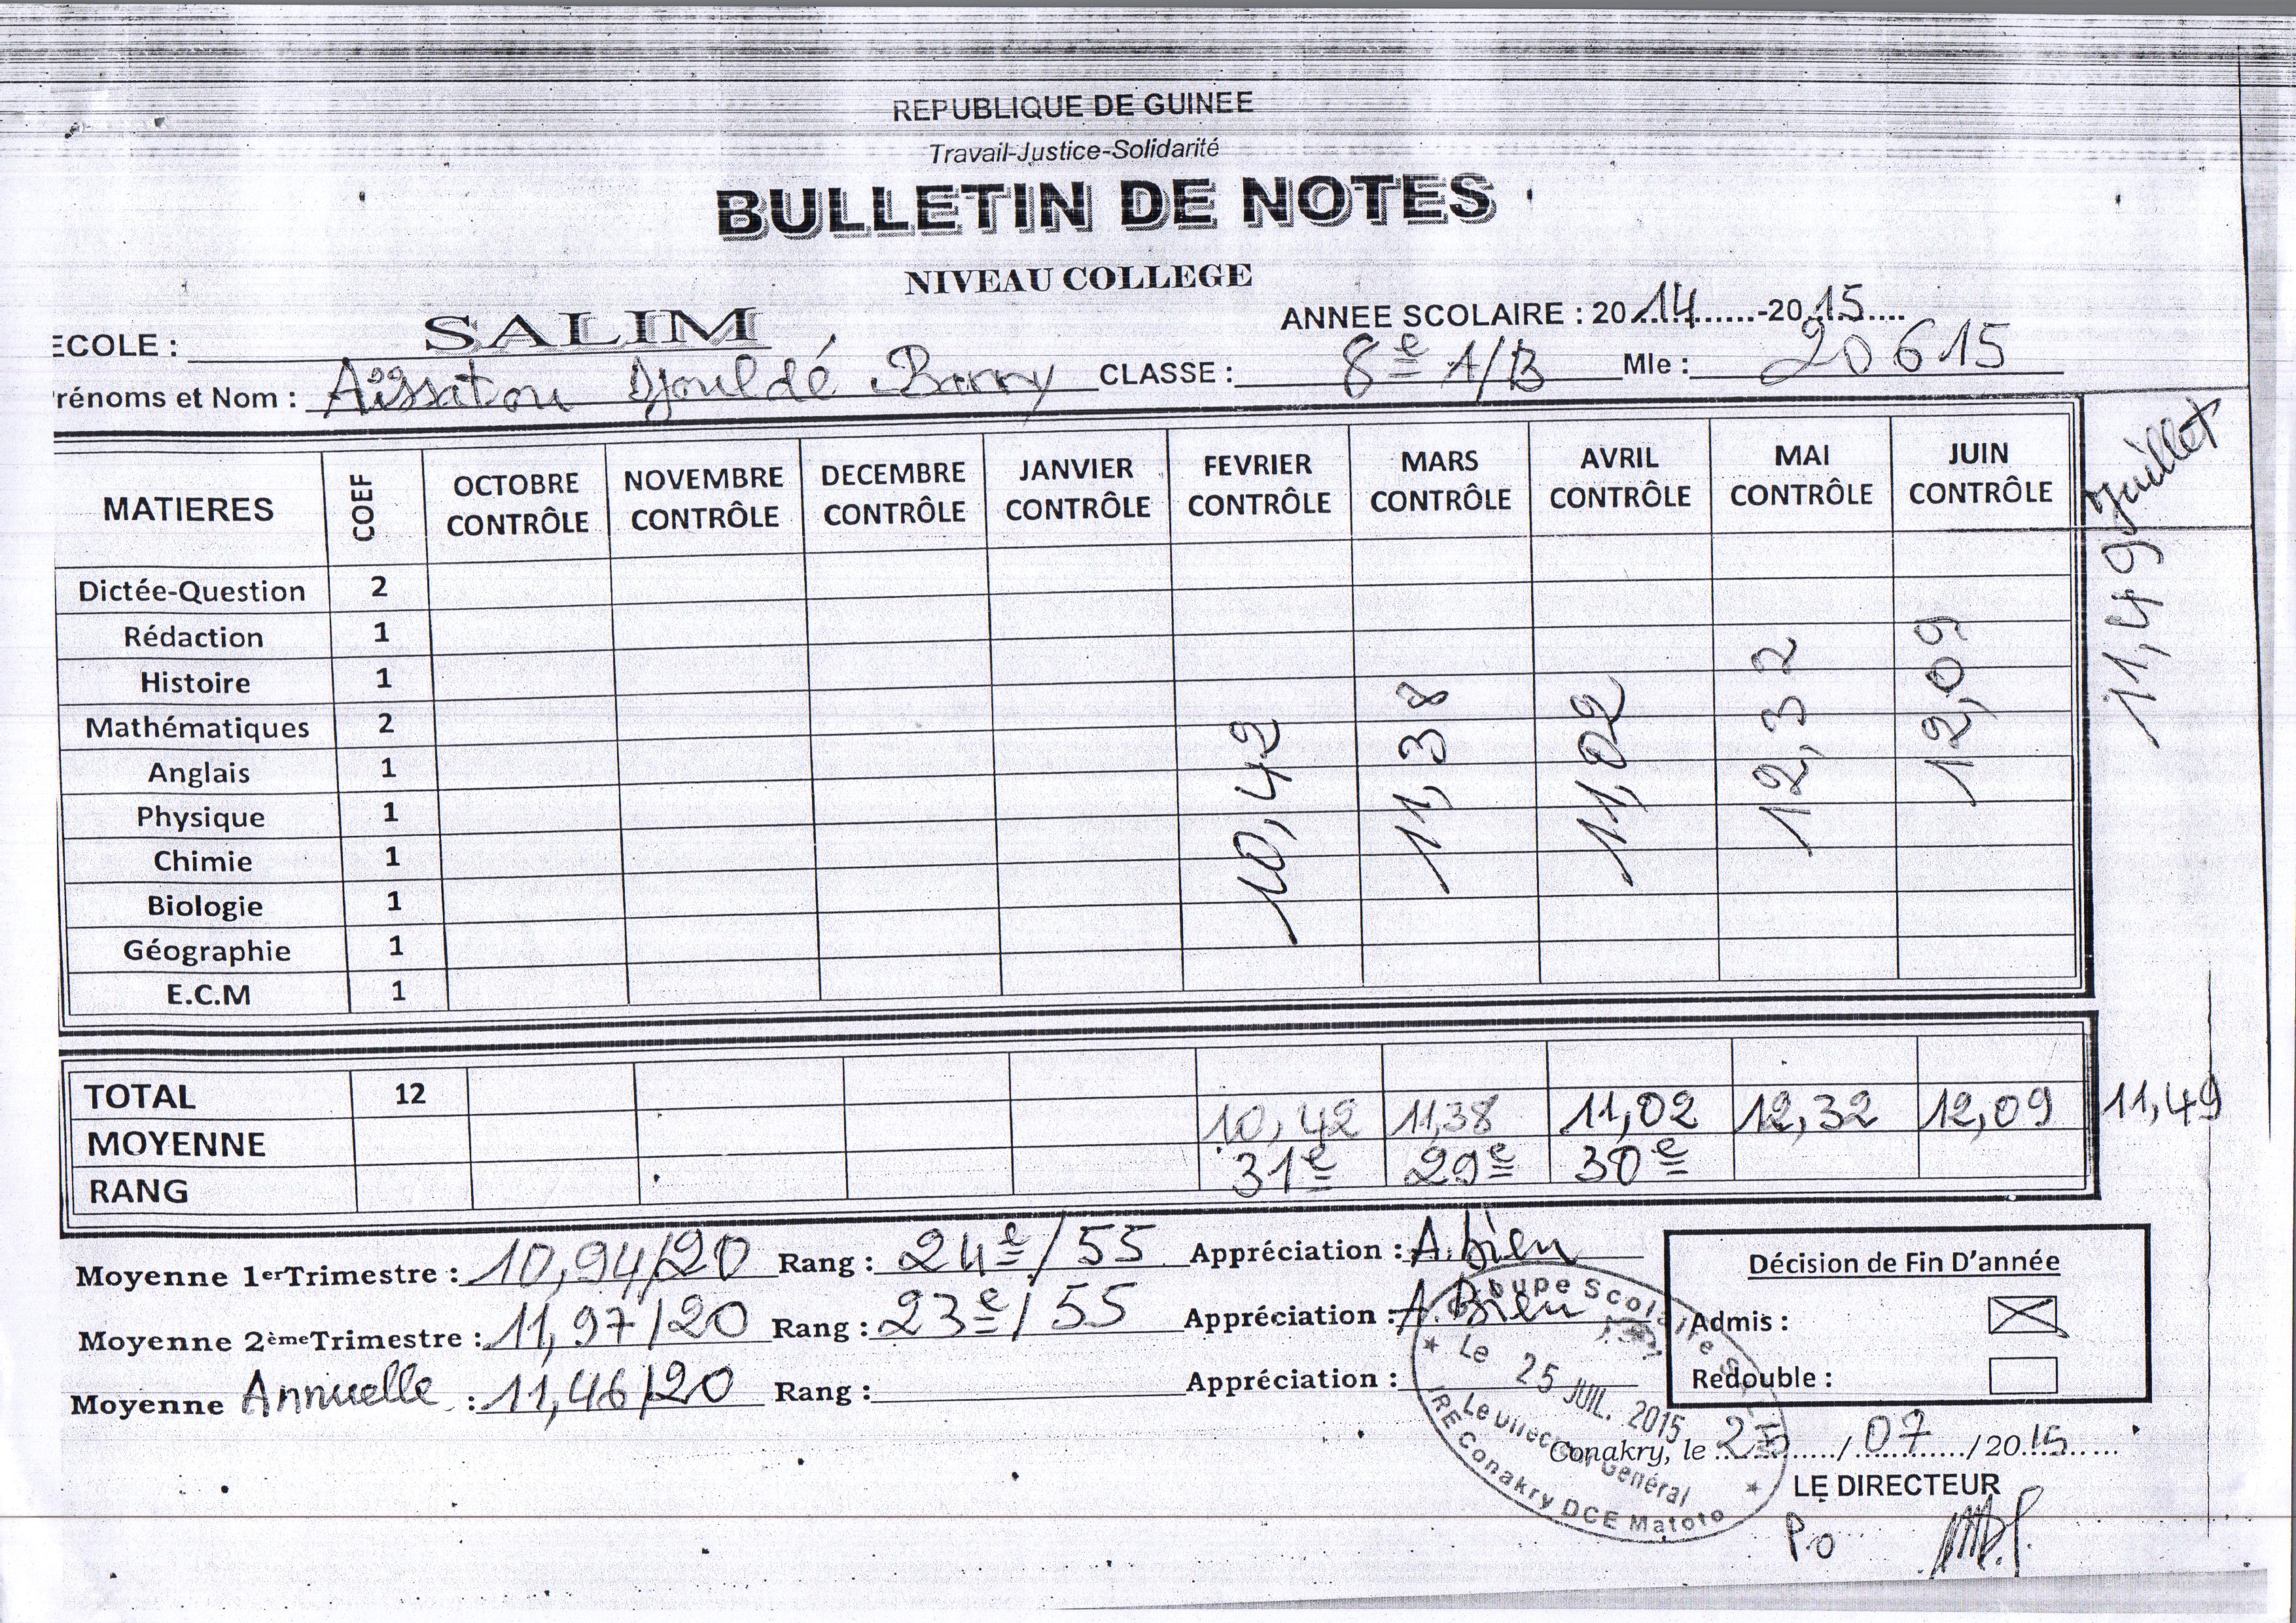 REPUBLIQUE DE GUINEE
Travail-Justice-Solidarité
BULLETIN DE NOTES
NIVEAU COLLEGE
ECOLE : SALIM ANNEE SCOLAIRE : 2014-2015
rénoms et Nom : Aissatou Djouldé Barry CLASSE : 8e A/B Mle : 20615
MATIERES COEF OCTOBRE CONTRÔLE NOVEMBRE CONTRÔLE DECEMBRE CONTRÔLE JANVIER CONTRÔLE FEVRIER CONTRÔLE MARS CONTRÔLE AVRIL CONTRÔLE MAI CONTRÔLE JUIN CONTRÔLE Juillet
Dictée-Question 2
Rédaction 1
Histoire 1
Mathématiques 2
Anglais 1
Physique 1
Chimie 1
Biologie 1
Géographie 1
E.C.M 1
10,42 11,38 11,02 12,32 12,09 11,49
TOTAL 12
MOYENNE 10,42 11,38 11,02 12,32 12,09 11,49
RANG 31e 29e 30e
Moyenne 1erTrimestre : 10,94/20 Rang : 24e/55 Appréciation : A.bien
Moyenne 2èmeTrimestre : 11,97/20 Rang : 23e/55 Appréciation : A.Bien
Moyenne Annuelle : 11,46/20 Rang : Appréciation :
Décision de Fin D'année
Admis :
Redouble :
Groupe Scolaire
Le 25 JUIL. 2015
Le Directeur Général
IRE Conakry DCE Matoto
Conakry, le 25/07/2015
LE DIRECTEUR
P.o